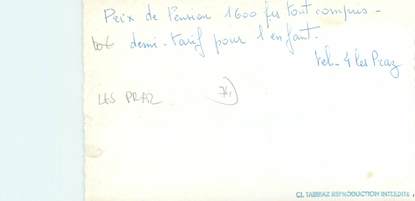 Prix de Pension 1600 frs tout compris -
demi-tarif pour l'enfant.
tel - 4 les Praz
LES PRAZ
CL TAIRRAZ REPRODUCTION INTERDITE